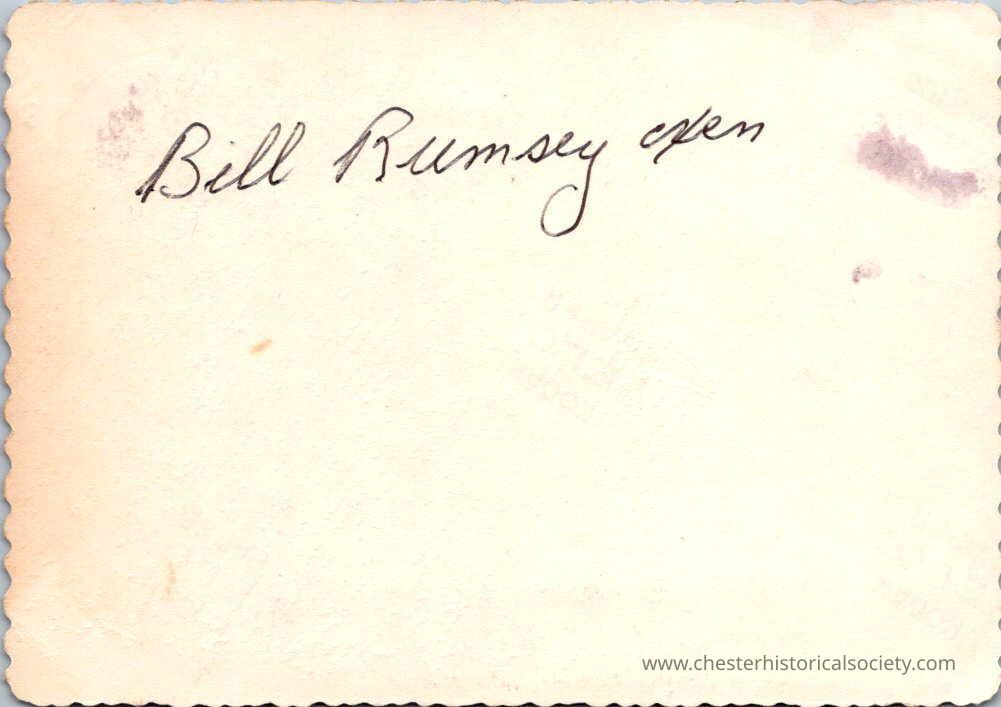 Bill Rumsey oxen
www.chesterhistoricalsociety.com